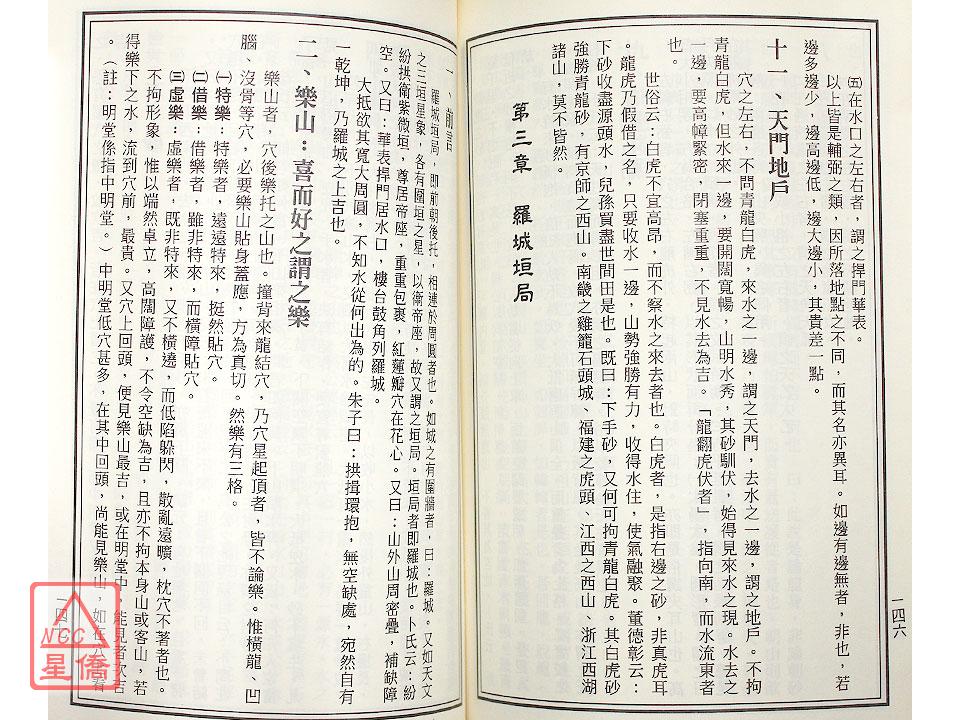 ㈤在水口之左右者,謂之捍門華表。
以上皆是輔弼之類,因所落地點之不同,而其名亦異耳。如邊有邊無者,非也,若
邊多邊少,邊高邊低,邊大邊小,其貴差一點。
十一、天門地戶
穴之左右,不問青龍白虎,來水之一邊,謂之天門,去水之一邊,謂之地戶。不拘
青龍白虎,但水來一邊,要開闊寬暢,山明水秀,其砂馴伏,始得見來水之現。水去之
一邊,要高嶂緊密,閉塞重重,不見水去為吉。「龍翻虎伏者」,指向南,而水流東者
也。
世俗云:白虎不宜高昂,而不察水之來去者也。白虎者,是指右邊之砂,非真虎耳
。龍虎乃假借之名,只要收水一邊,山勢強勝有力,收得水住,使氣融聚。董德彰云:
下砂收盡源頭水,兒孫買盡世間田是也。既曰:下手砂,又何可拘青龍白虎。其白虎砂
強勝青龍砂,有京師之西山。南畿之雞籠石頭城、福建之虎頭、江西之西山、浙江西湖
諸山,莫不皆然。
第三章 羅城垣局
一四六
一、前言
羅城垣局,即前朝後托,相連於周圓者也。如城之有圍牆者,曰:羅城。又如天文
之三垣星象,各有圍垣之星,以衛帝座,故又謂之垣局。垣局者即羅城也。卜氏云:紛
紛拱衛紫微垣,尊居帝座,重重包裹,紅蓮瓣穴在花心。又曰:山外山周密疊,補缺障
空。又曰:華表捍門居水口,樓台鼓角列羅城。
大抵欲其寬大周圓,不知水從何出為的。朱子曰:拱揖環抱,無空缺處,宛然自有
一乾坤,乃羅城之上吉也。
二、樂山:喜而好之謂之樂
樂山者,穴後樂托之山也。撞背來龍結穴,乃穴星起頂者,皆不論樂。惟橫龍、凹
腦、沒骨等穴,必要樂山貼身蓋應,方為真切。然樂有三格。
㈠特樂:特樂者,遠遠特來,挺然貼穴。
㈡借樂:借樂者,雖非特來,而橫障貼穴。
㈢虛樂:虛樂者,既非特來,又不橫遶,而低陷躲閃,散亂遠曠,枕穴不著者也。
不拘形象,惟以端然卓立,高闊障護,不令空缺為吉,且亦不拘本身山或客山,若
得樂下之水,流到穴前,最貴。又穴上回頭,便見樂山最吉,或在明堂中,能見者次吉
。(註:明堂係指中明堂。)中明堂低穴甚多,在其中回頭,尚能見樂山,如在 看
一四
NCC
星僑